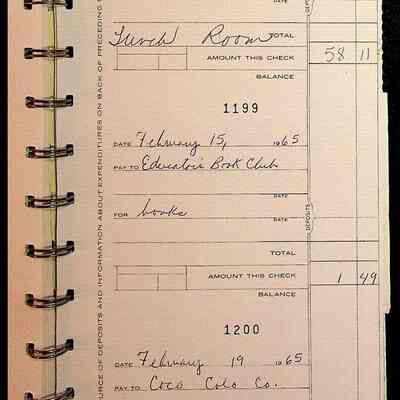 DATE
Lunch Room TOTAL
AMOUNT THIS CHECK 58 11
BALANCE
1199
DATE February 15, 1965
PAY TO Educator's Book Club
DATE
FOR books
DATE
DEPOSITS
TOTAL
AMOUNT THIS CHECK 1 49
BALANCE
1200
DATE February 19 1965
PAY TO Coca Cola Co.
URCE OF DEPOSITS AND INFORMATION ABOUT EXPENDITURES ON BACK OF PRECEDING